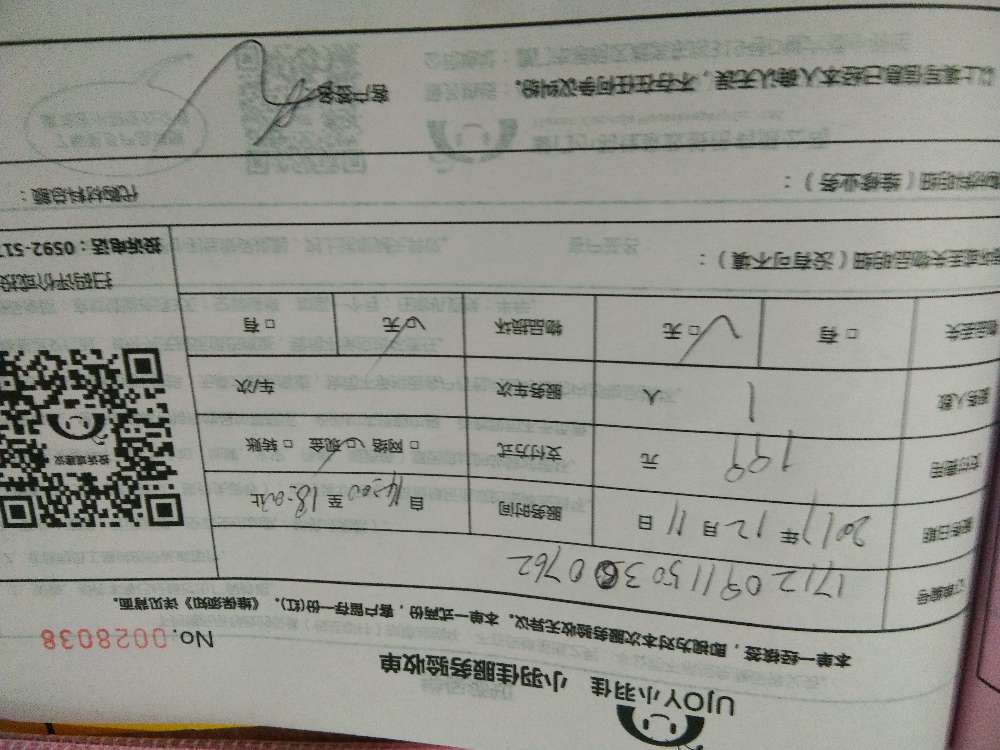 UJOY小羽佳 小羽佳服务验收单
No.0028038
本单一经核签，即视为对本次服务验收无异议。本单一式两份，客户留存一份(红)。《维保须知》详见背面。
订单编号 1712091150360762
服务日期 2017年12月11日 服务时间 自14:00至18:00止
支付费用 199元 支付方式 □网络 □现金 □转账
服务人数 1人 服务车次 车/次
物品丢失 □有 □无 物品损坏 □无 □有
投诉或建议
扫码评价或投
投诉电话：0592-517
损坏或丢失物品明细（没有可不填）：
材料明细（维修业务）： 代购材料总额：
以上填写信息已经本人确认无误，不存在任何争议纠纷。 客户签名